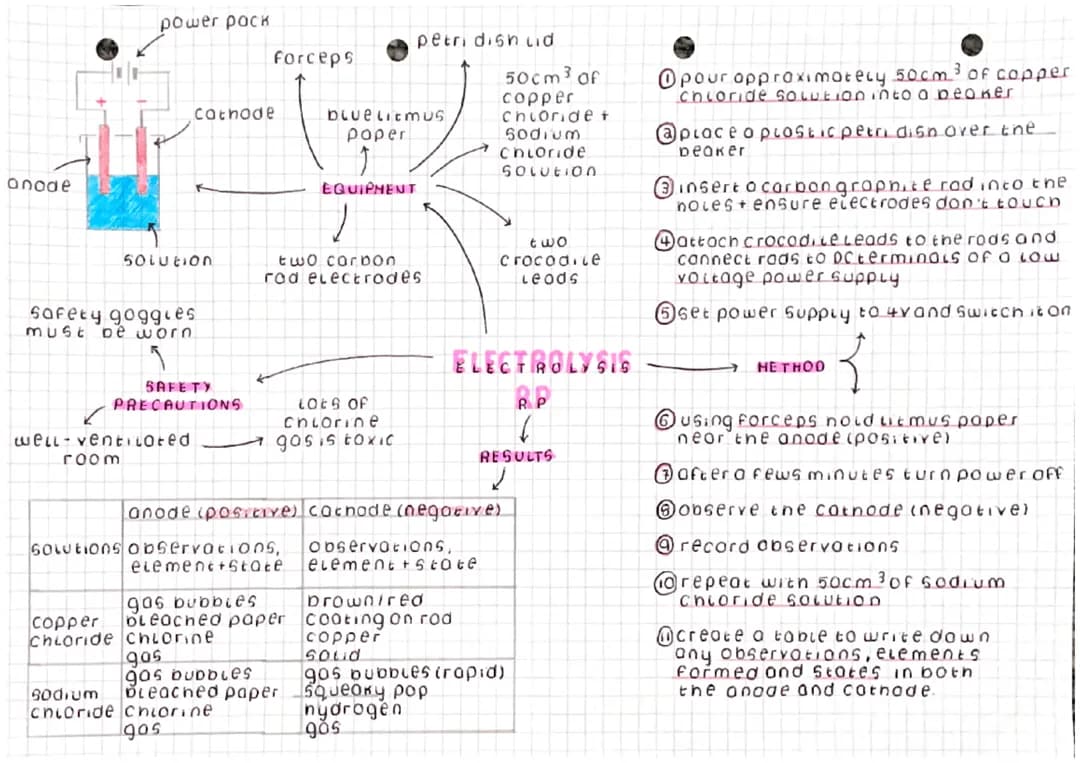 power pack
+ −
cathode
anode
solution
forceps
petri dish lid
blue litmus
paper
50cm³ of
copper
chloride +
sodium
chloride
solution
EQUIPMENT
two carbon
rod electrodes
two
crocodile
leads
safety goggles
must be worn
SAFETY
PRECAUTIONS
well-ventilated
room
lots of
chlorine
gas is toxic
ELECTROLYSIS
RP
METHOD
RESULTS
① pour approximately 50cm³ of copper
chloride solution into a beaker
② place a plastic petri dish over the
beaker
③ insert a carbon graphite rod into the
holes + ensure electrodes don't touch
④ attach crocodile leads to the rods and
connect rods to DC terminals of a low
voltage power supply
⑤ set power supply to 4V and switch it on
⑥ using forceps hold litmus paper
near the anode (positive)
⑦ after a fews minutes turn power off
⑧ observe the cathode (negative)
⑨ record observations
⑩ repeat with 50cm³ of sodium
chloride solution
⑪ create a table to write down
any observations, elements
formed and states in both
the anode and cathode.
anode (positive) cathode (negative)
solutions observations, observations,
element + state element + state
gas bubbles brown/red
copper bleached paper coating on rod
chloride chlorine copper
gas solid
gas bubbles gas bubbles (rapid)
sodium bleached paper squeaky pop
chloride chlorine hydrogen
gas gas